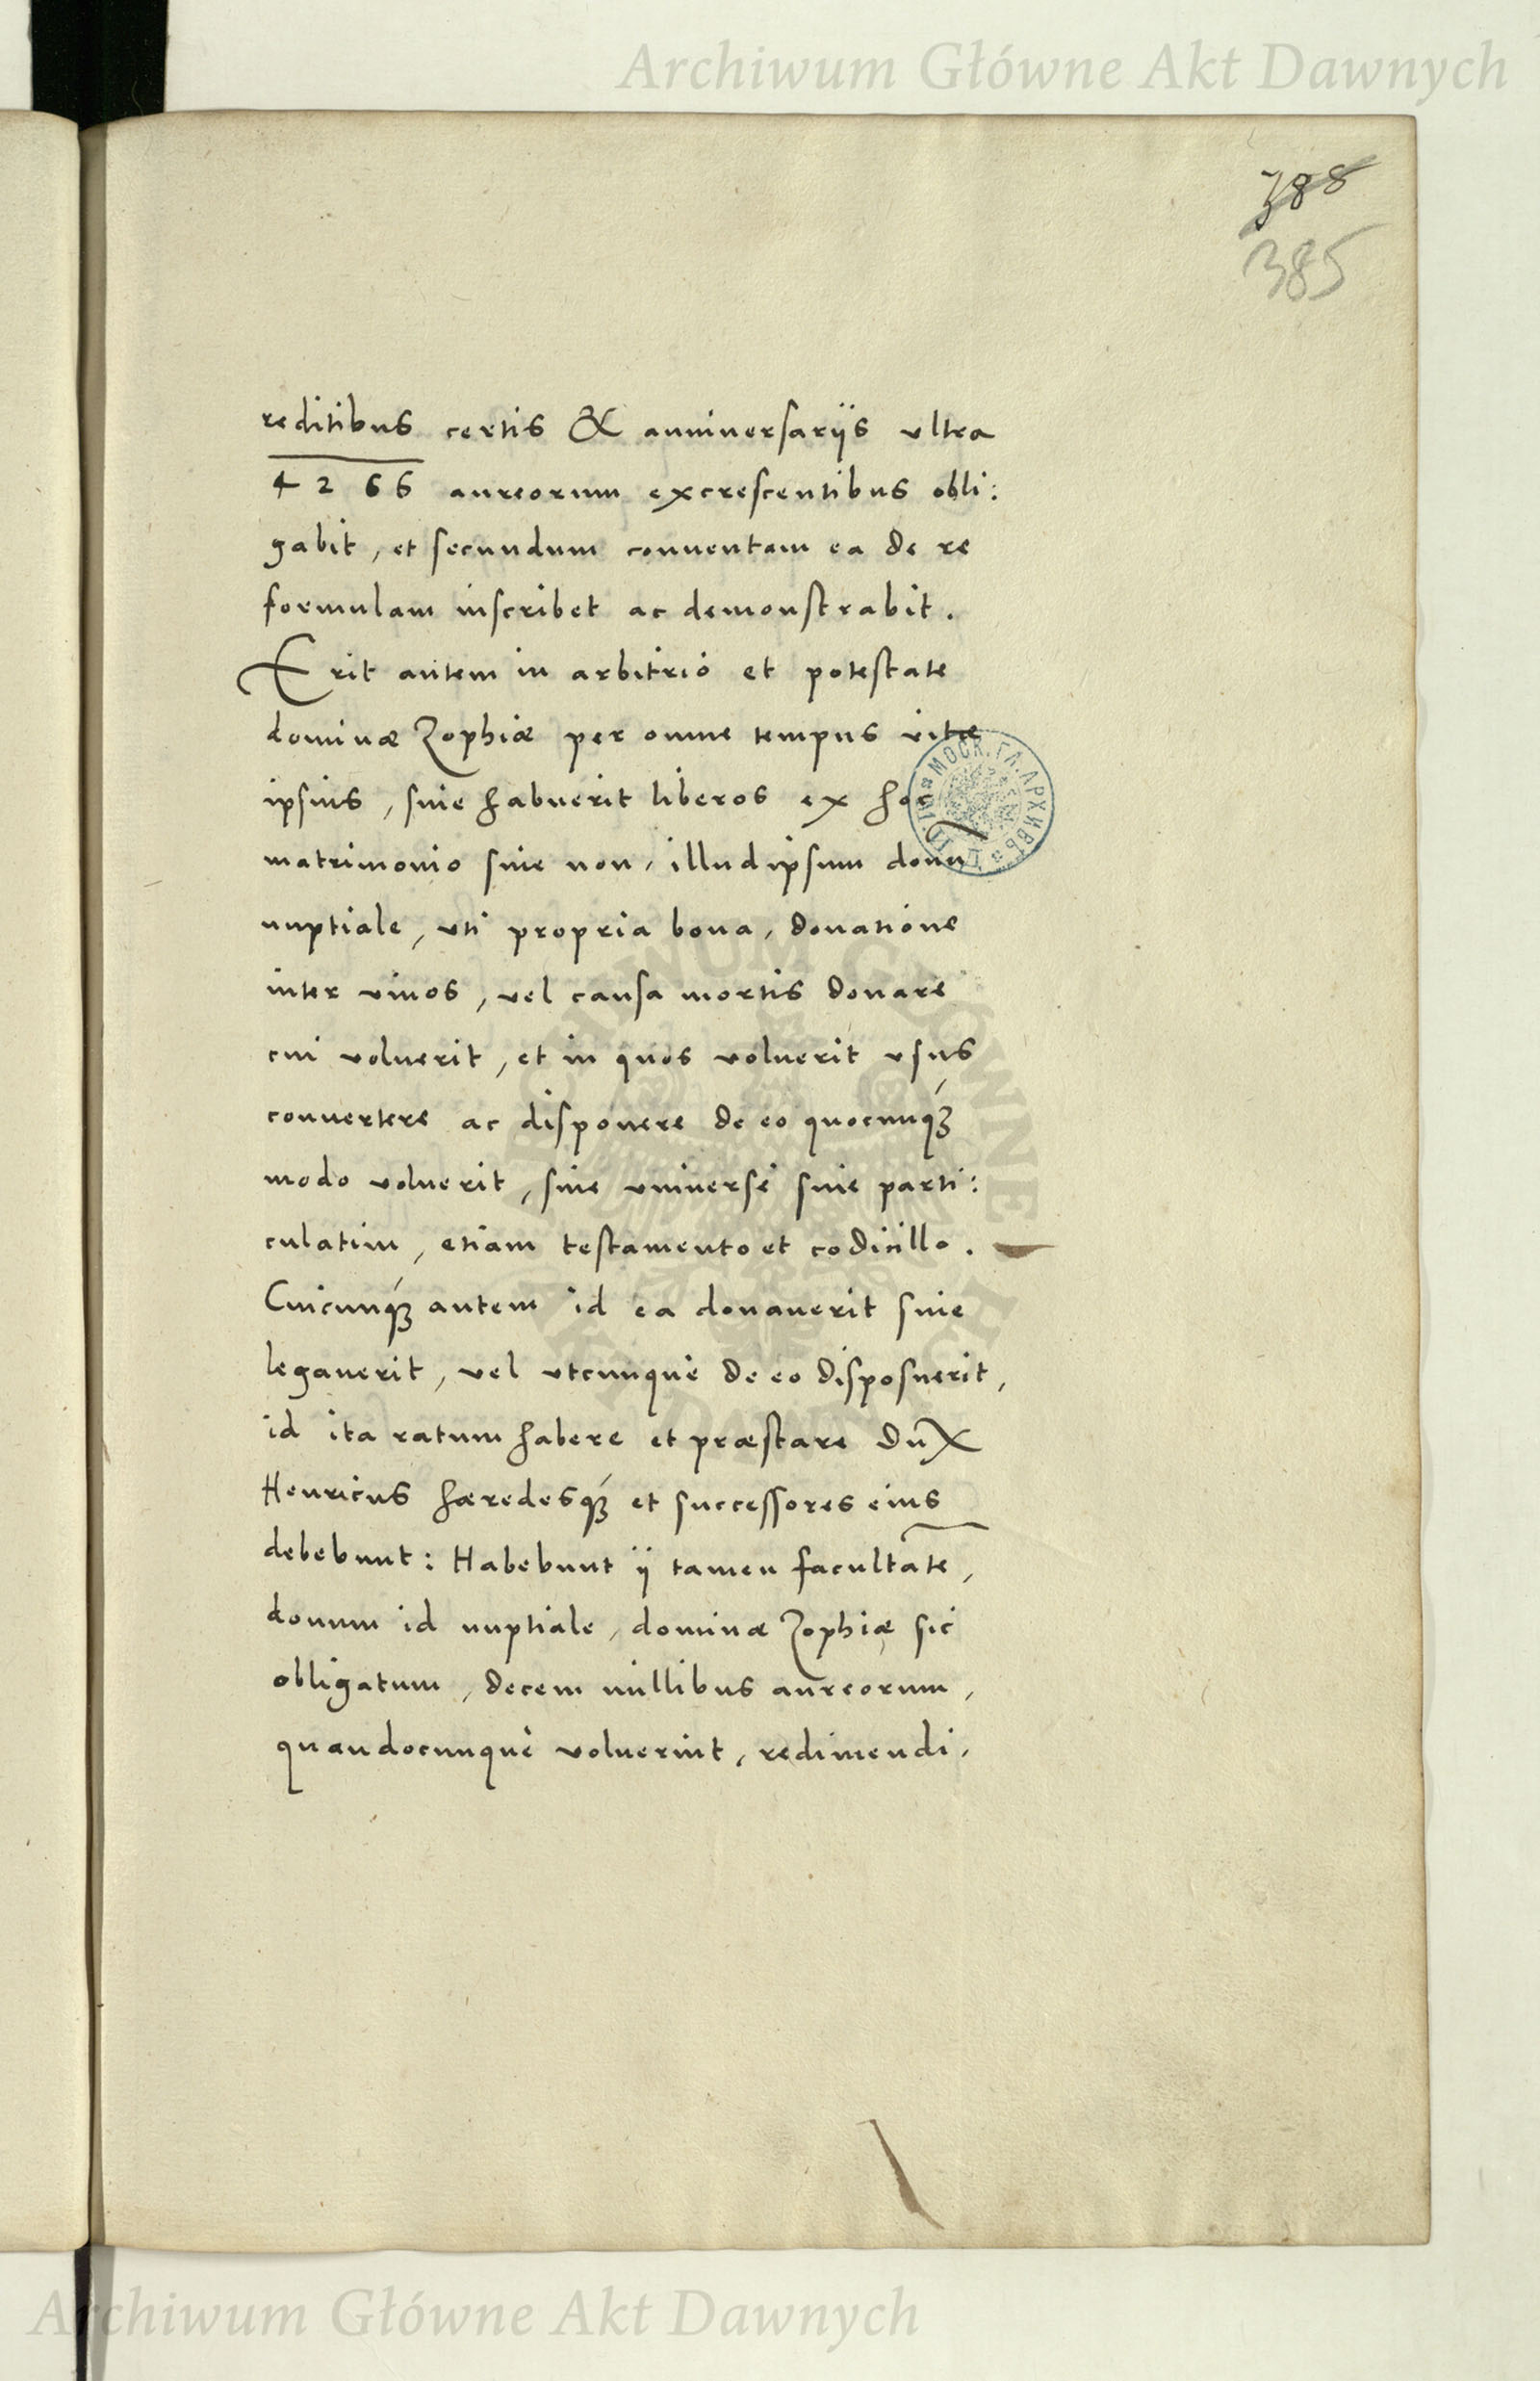 Archiwum Główne Akt Dawnych
388
385
reditibus certis & anniuersarijs vltra
4266 aureorum excrescentibus obli:
gabit, et secundum conuentam ea de re
formulam inscribet ac demonstrabit.
Erit autem in arbitrio et potestate
dominæ Zophiæ per omne tempus vitæ
ipsius, siue habuerit liberos ex hoc
matrimonio siue non, illud ipsum donu
nuptiale, uti propria bona, donatione
inter viuos, vel causa mortis donare
cui voluerit, et in quos voluerit vsus
conuertere ac disponere de eo quocunq́ꝫ
modo voluerit, siue vniuersè siue parti:
culatim, etiam testamento et codicillo.
Cuicunq́ꝫ autem id ea donauerit siue
legauerit, vel vtcunque de eo disposuerit,
id ita ratum habere et præstare Dux
Henricus hæredesq́ꝫ et successores eius
debebunt: Habebunt ij tamen facultāte,
donum id nuptiale, dominæ Zophiæ sic
obligatum, decem millibus aureorum,
quandocunque voluerint, redimendi,
МОСК. ГЛ. АРХИВЪ
ARCHIWUM GŁÓWNE AKT DAWNYCH
Archiwum Główne Akt Dawnych